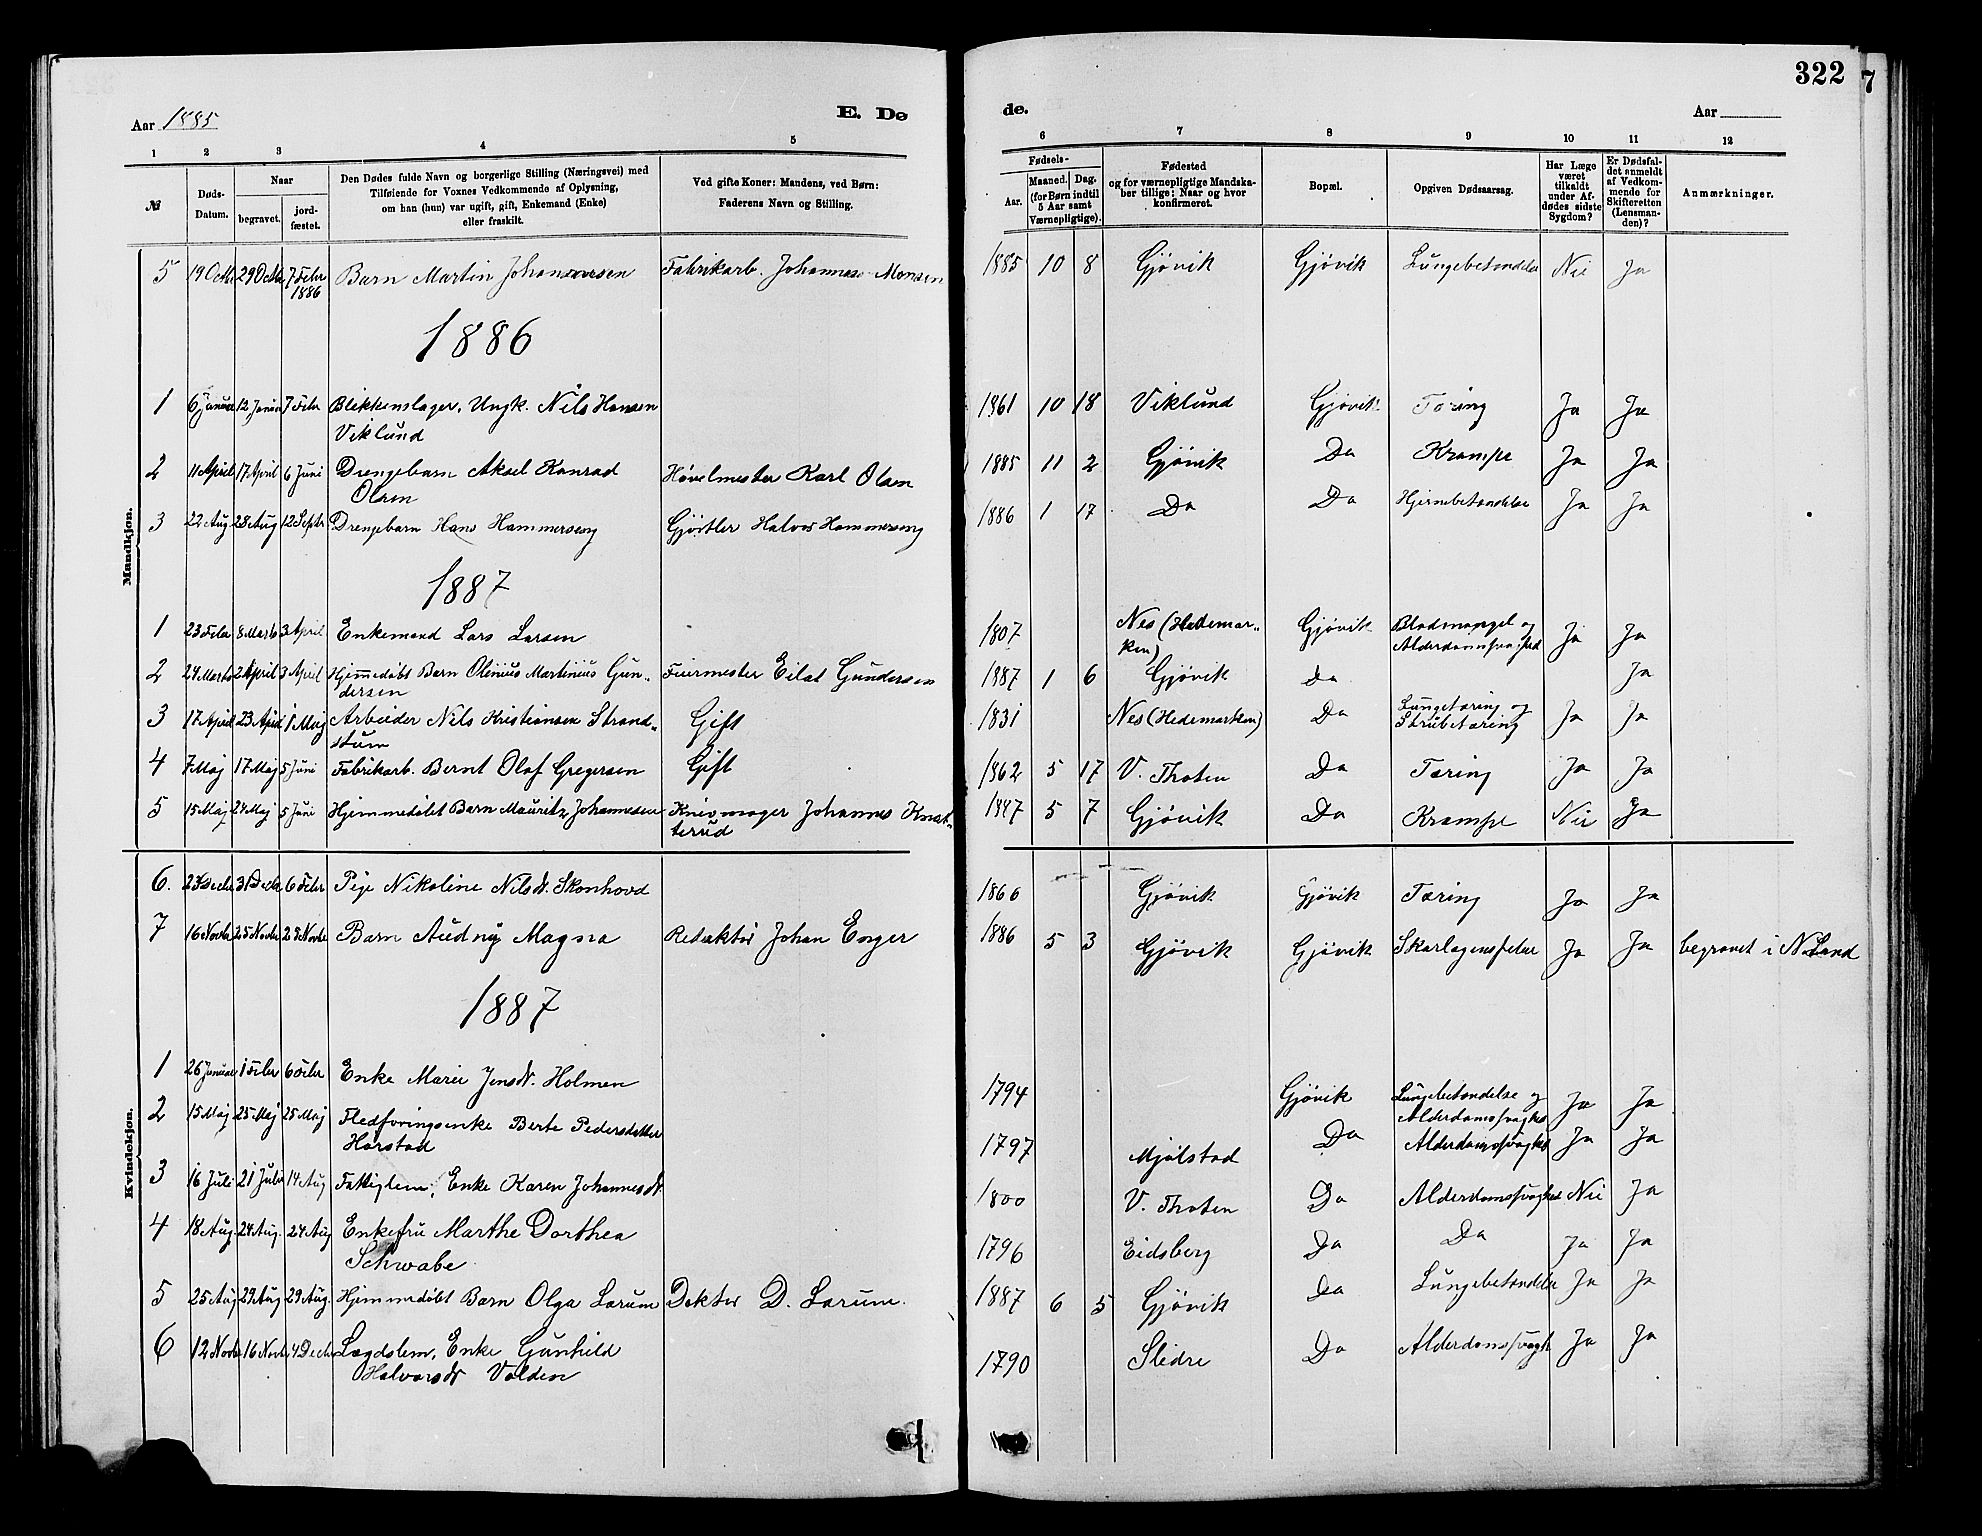 322
7
Aar 1885
E. Dø
de.
Aar
1 2 3 4 5 6 7 8 9 10 11 12
№
Døds-Datum.
Naar
begravet.
jord-fæstet.
Den Dødes fulde Navn og borgerlige Stilling (Næringsvei) med
Tilføiende for Voxnes Vedkommende af Oplysning,
om han (hun) var ugift, gift, Enkemand (Enke)
eller fraskilt.
Ved gifte Koner: Mandens, ved Børn:
Faderens Navn og Stilling.
Fødsels-
Aar.
Maaned. Dag.
(for Børn indtil
5 Aar samt
Værnepligtige).
Fødested
og for værnepligtige Mandska-
ber tillige: Naar og hvor
konfirmeret.
Bopæl.
Opgiven Dødsaarsag.
Har Læge
været
tilkaldt
under Af-
dødes sidste
Sygdom?
Er Dødsfal-
det anmeldt
af Vedkom-
mende for
Skifteretten
(Lensman-
den)?
Anmærkninger.
Mandkjøn.
5 19 Octbr 29 Octbr 7 Febr 1886 Barn Martin Johannesen Fabrikarb. Johannes Monsen 1885 10 8 Gjøvik Gjøvik Lungebetændelse Nei Ja
1886
1 6 Januar 12 Januar 7 Febr Blikkenslager, Ungk. Nils Hansen 1861 10 18 Viklund Gjøvik Tæring Ja Ja
Viklund
2 11 April 17 April 6 Juni Drengebarn Aksel Konrad Høvelmester Karl Olsen 1885 11 2 Gjøvik Do Krampe Ja Ja
Olsen
3 22 Aug 28 Aug 12 Septr Drengebarn Hans Hammerseng Gjørtler Halvor Hammerseng 1886 1 17 Do Do Hjernebetændelse Ja Ja
1887
1 23 Febr 8 Marts 3 April Enkemand Lars Larsen 1807 Nes (Hedemar- Gjøvik Blodmangel og Ja Ja
ken) Alderdomssvaghed
2 24 Marts 2 April 3 April Hjemmedøbt Barn Olenius Martinius Gun- Feiermester Eilat Gundersen 1887 1 6 Gjøvik Do Ja
dersen
3 17 April 23 April 1 Maj Arbeider Nils Kristiansen Strand- Gift 1831 Nes (Hedemarken) Do Lungetæring og Ja Ja
stuen Strubetæring
4 7 Maj 17 Maj 5 Juni Fabrikarb. Bernt Olaf Gregersen Gift 1862 5 17 V. Thoten Do Tæring Ja Ja
5 15 Maj 24 Maj 5 Juni Hjemmedøbt Barn Mauritz Johannesen Knivmager Johannes Knat- 1887 5 7 Gjøvik Do Krampe Nei Ja
terud
Kvindekjøn.
6. 23 Decbr 31 Decbr 6 Febr Pige Nikoline Nilsdr. Skonhovd 1866 Gjøvik Gjøvik Tæring Ja Ja
7 16 Novbr 25 Novbr 28 Novbr Barn Audny Magna Redaktør Johan Enger 1886 5 3 Gjøvik Gjøvik Skarlagensfeber Ja Ja begravet i N. Land
1887
1 26 Januar 1 Febr 6 Febr Enke Marie Jensdr. Holmen 1794 Gjøvik Lungebetændelse og Ja Ja
Alderdomssvaghed
2 15 Maj 25 Maj 25 Maj Fledføringsenke Berte Pedersdatter 1797 Mjølstad Do Alderdomssvaghed Ja Ja
Horstad
3 16 Juli 21 Juli 14 Aug Fattiglem, Enke Karen Johannesdr. 1800 V. Thoten Do Alderdomssvaghed Nei Ja
4 18 Aug. 24 Aug. 24 Aug Enkefru Marthe Dorthea 1796 Eidsberg Do Do Ja Ja
Schwabe
5 25 Aug 29 Aug 29 Aug. Hjemmedøbt Barn Olga Larum Doktor D. Larum. 1887 6 5 Gjøvik Do Lungebetændelse Ja Ja
6 12 Novbr 16 Novbr 4 Decbr Lægdslem, Enke Gunhild 1790 Slidre Do Alderdomssvagh Ja Ja
Halvorsdr Volden